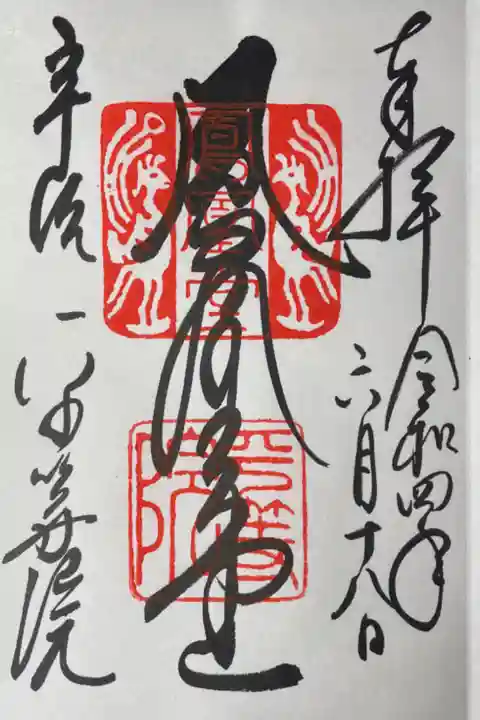 奉拝 令和四年
六月十八日
鳳凰堂
鳳凰堂
平等院
宇治 平等院